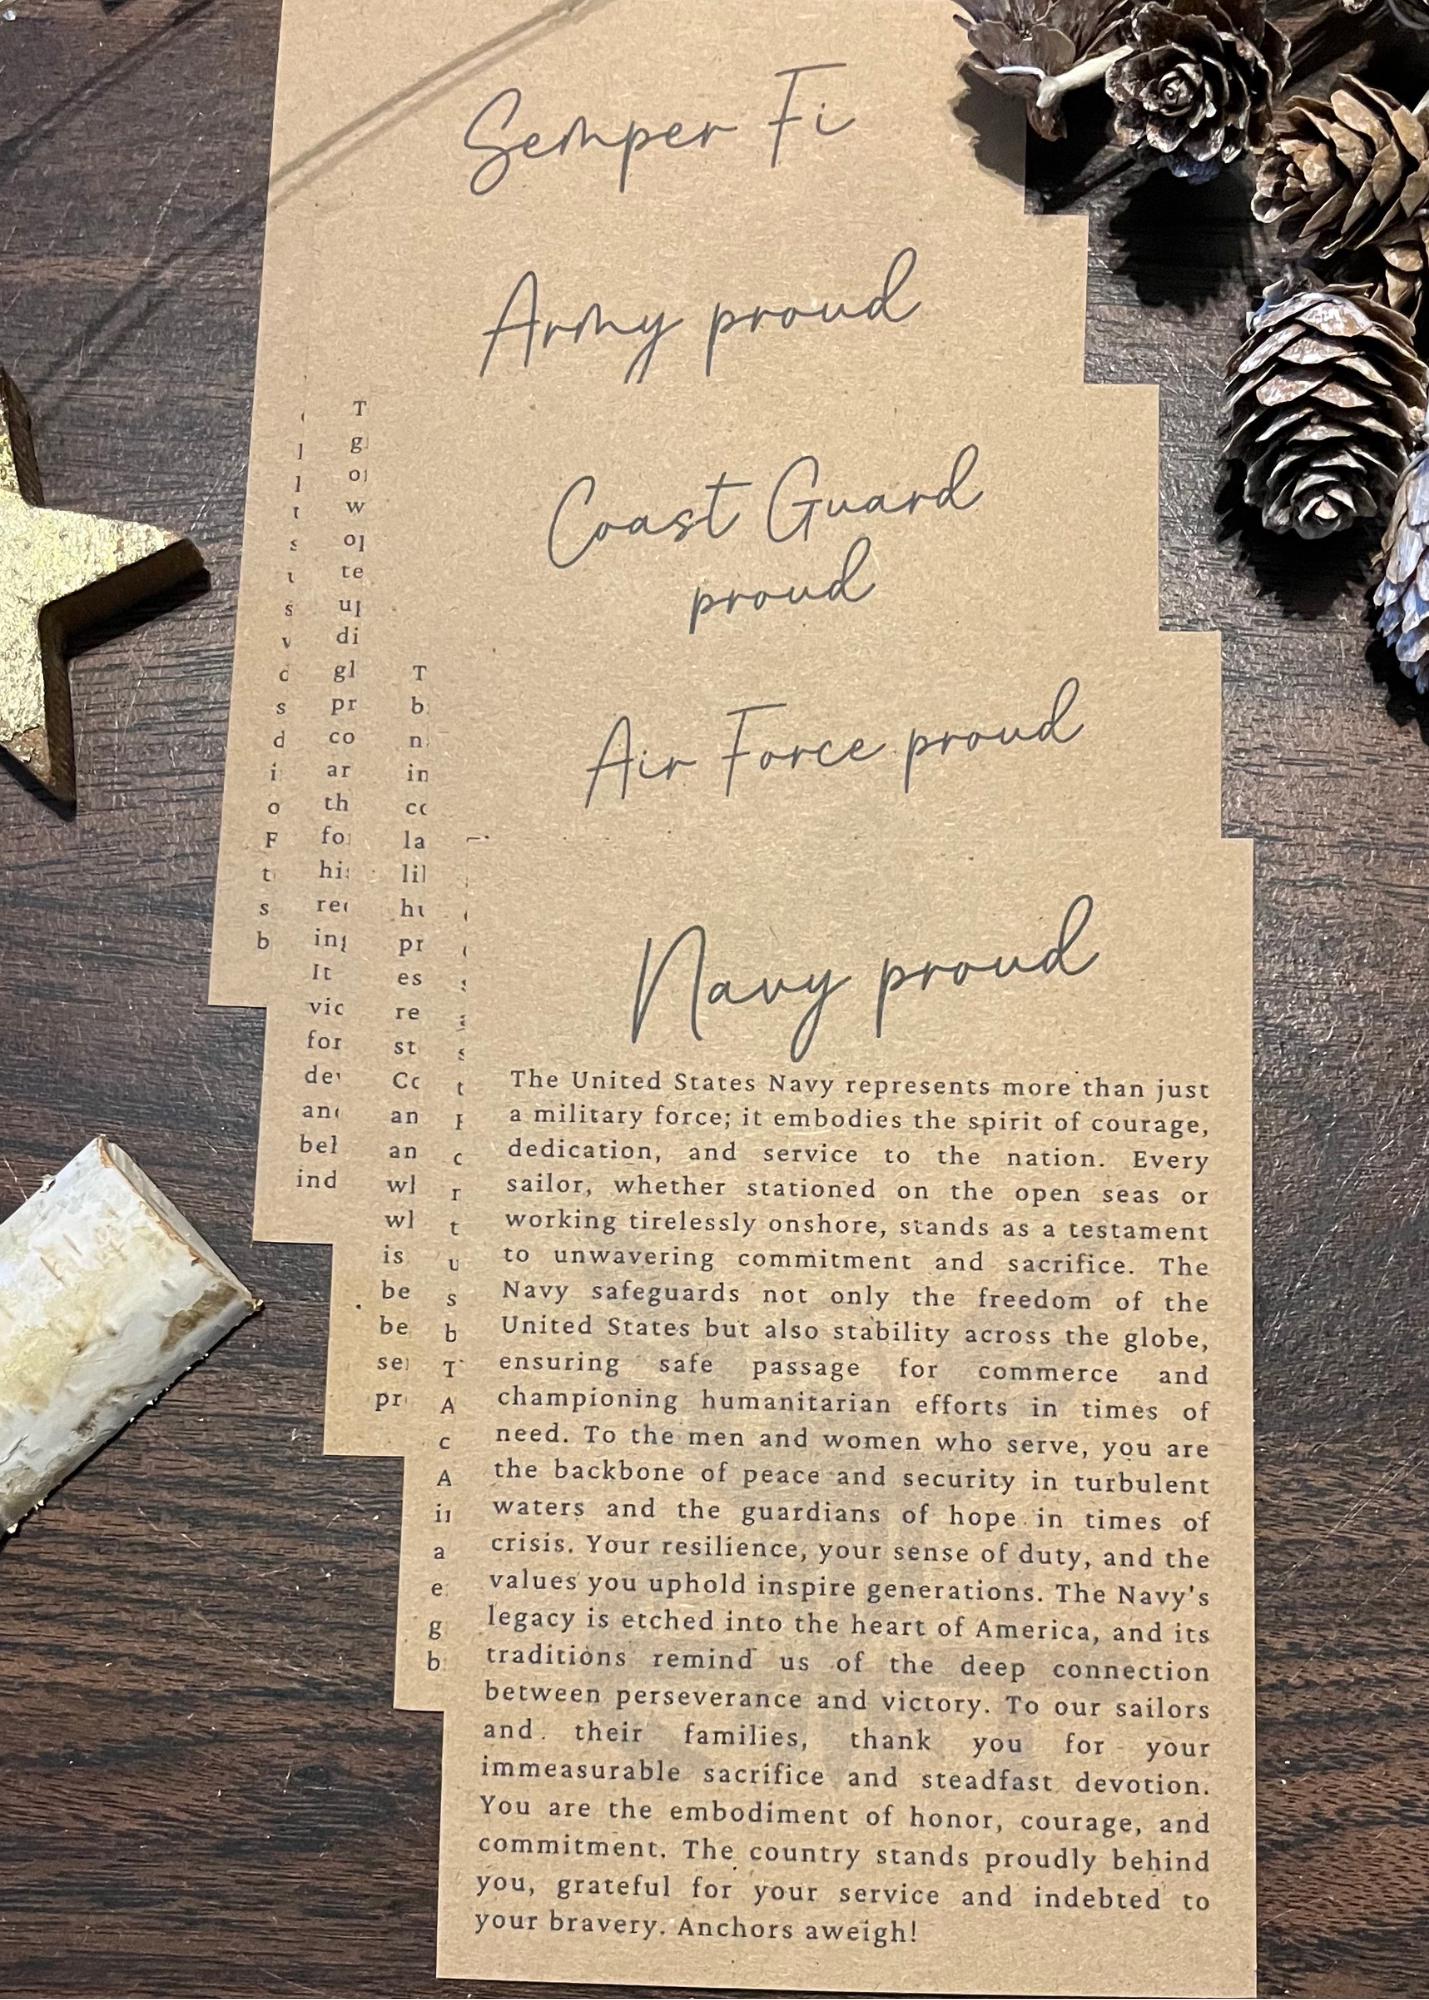 Semper Fi
Army proud
Coast Guard
proud
Air Force proud
Navy proud
The United States Navy represents more than just
a military force; it embodies the spirit of courage,
dedication, and service to the nation. Every
sailor, whether stationed on the open seas or
working tirelessly onshore, stands as a testament
to unwavering commitment and sacrifice. The
Navy safeguards not only the freedom of the
United States but also stability across the globe,
ensuring safe passage for commerce and
championing humanitarian efforts in times of
need. To the men and women who serve, you are
the backbone of peace and security in turbulent
waters and the guardians of hope in times of
crisis. Your resilience, your sense of duty, and the
values you uphold inspire generations. The Navy's
legacy is etched into the heart of America, and its
traditions remind us of the deep connection
between perseverance and victory. To our sailors
and their families, thank you for your
immeasurable sacrifice and steadfast devotion.
You are the embodiment of honor, courage, and
commitment. The country stands proudly behind
you, grateful for your service and indebted to
your bravery. Anchors aweigh!